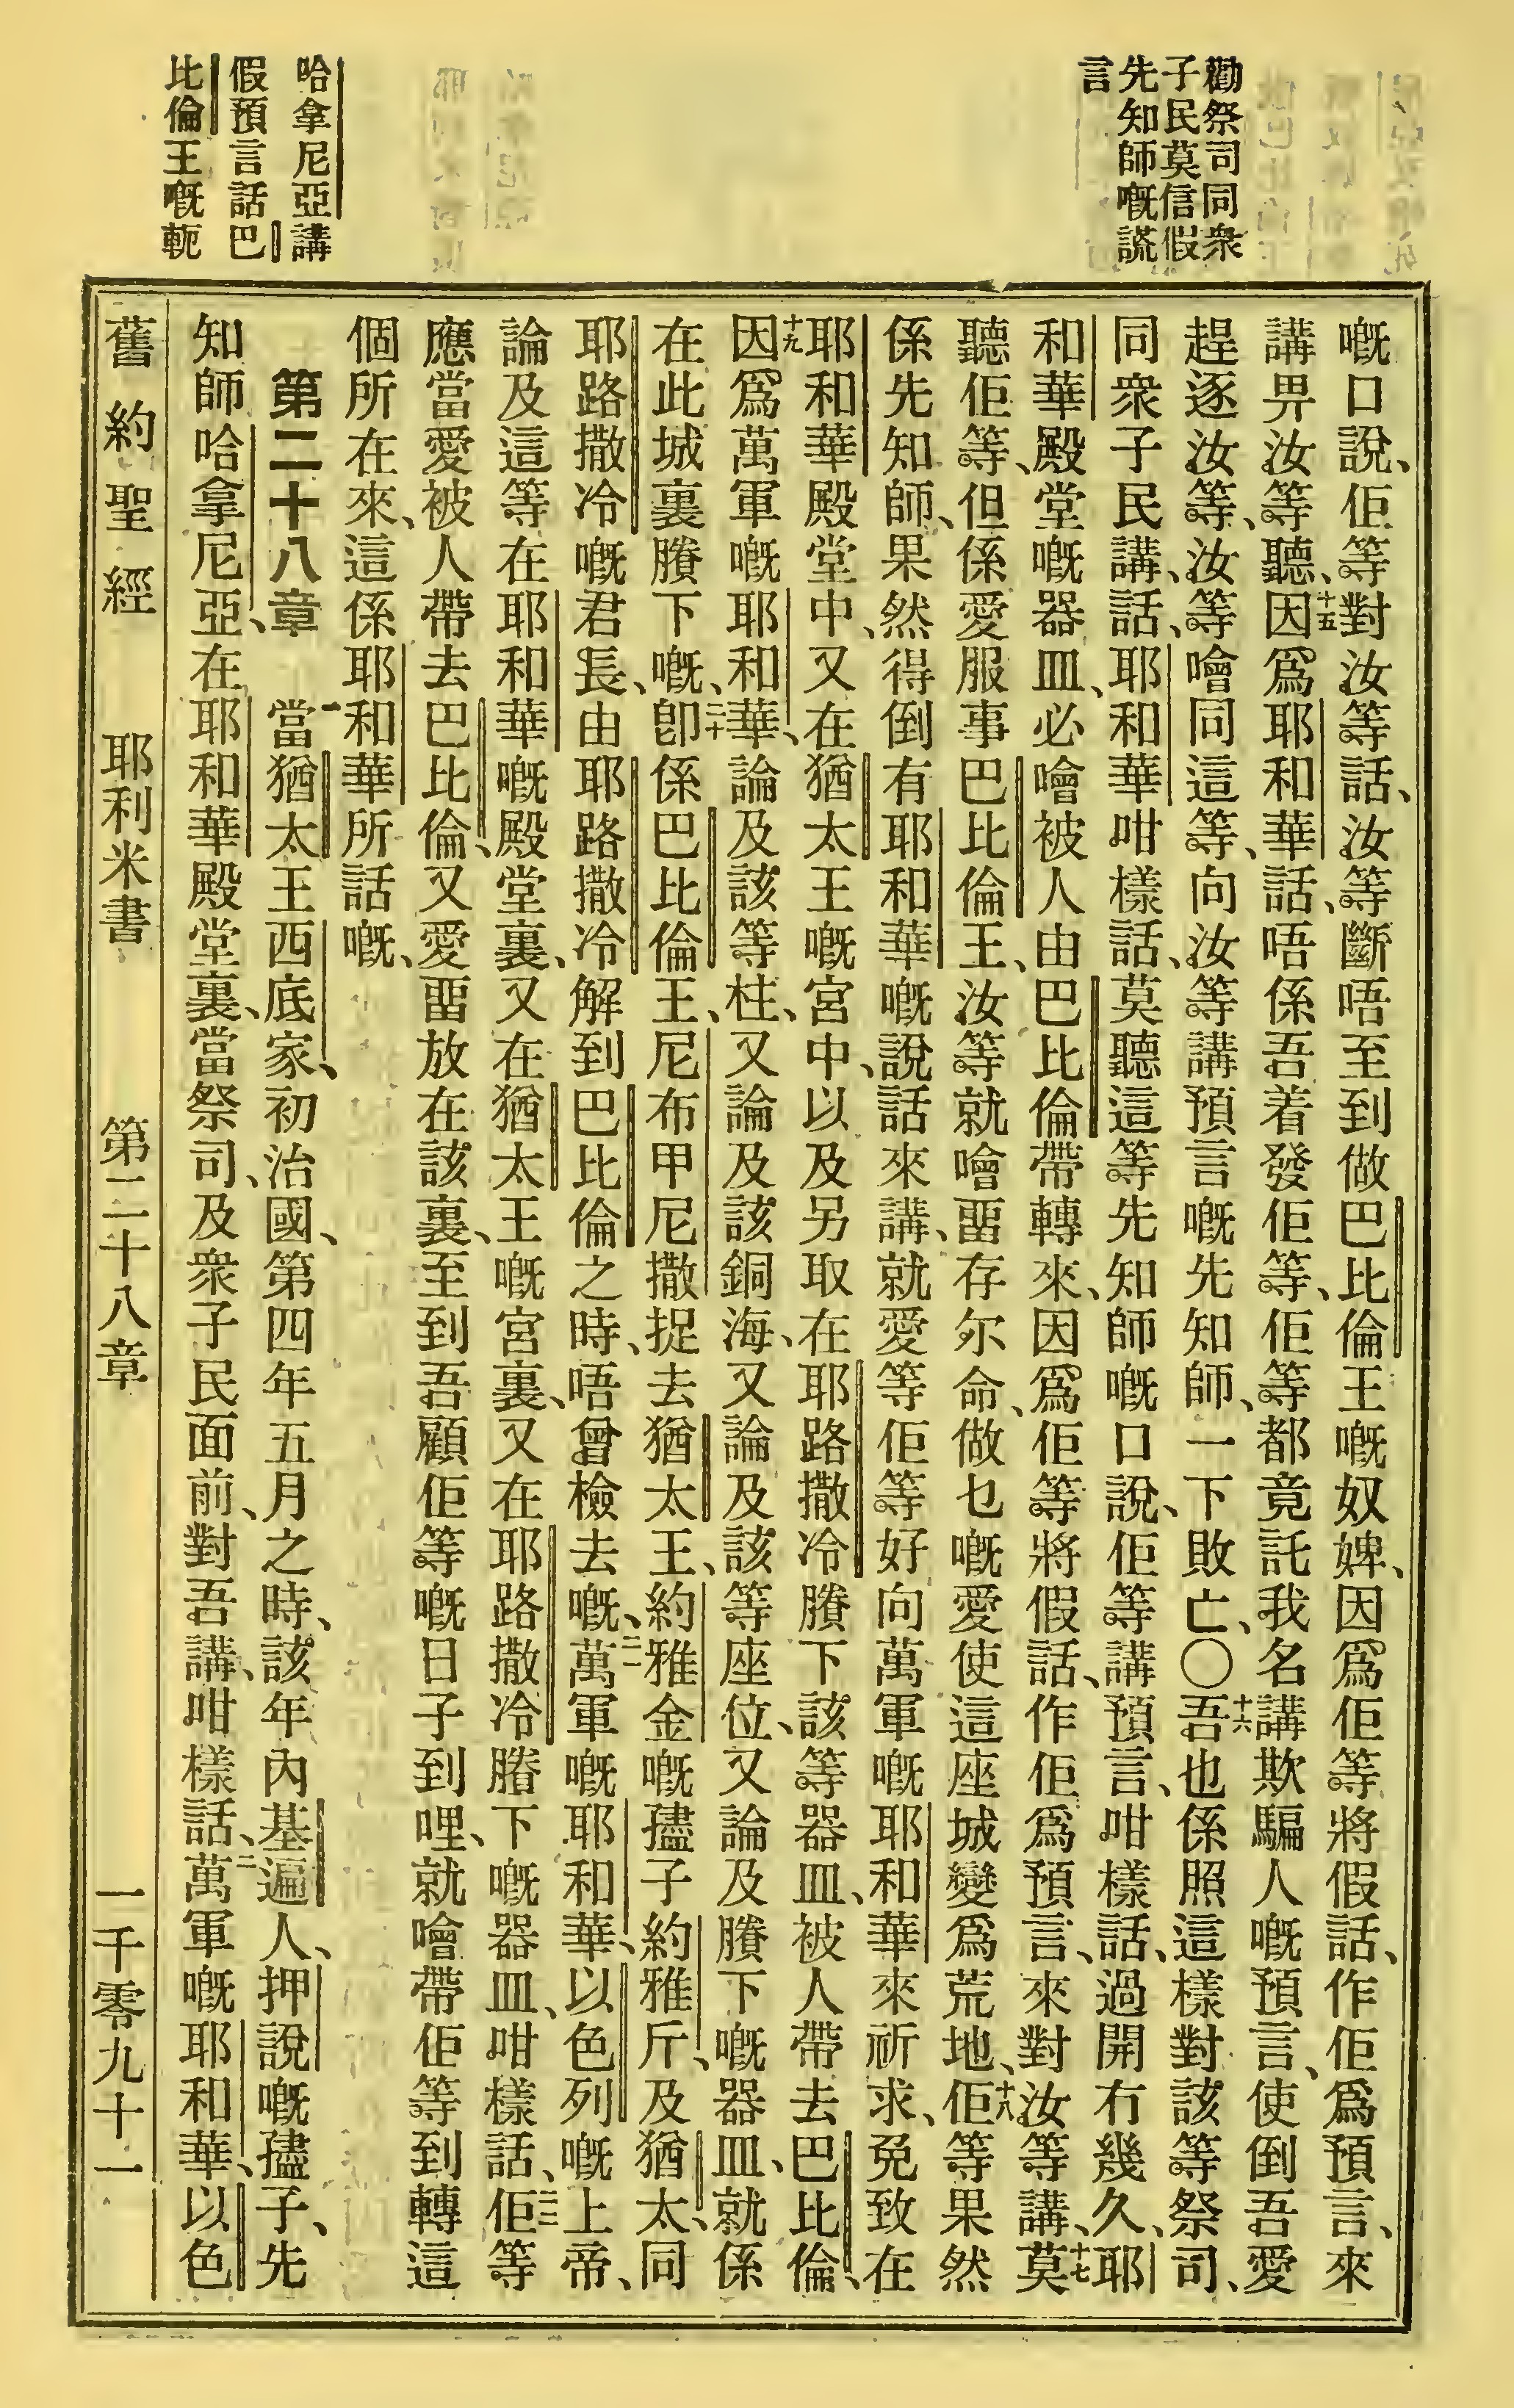 勸祭司同衆
子民莫信假
先知師嘅謊
言
哈拿尼亞講
假預言話巴
比倫王嘅軛
嘅口說、佢等對汝等話、汝等斷唔至到做巴比倫王嘅奴婢、因爲佢等將假話、作佢爲預言、來
講畀汝等聽、十五因爲耶和華話、唔係吾着發佢等、佢等都竟託我名講欺騙人嘅預言、使倒吾愛
趕逐汝等、汝等噲同這等、向汝等講預言嘅先知師、一下敗亡、〇十六吾也係照這樣對該等祭司、
同衆子民講、話、耶和華咁樣話、莫聽這等先知師嘅口說、佢等講預言、咁樣話、過開冇幾久、耶
和華殿堂嘅器皿、必噲被人由巴比倫帶轉來、因爲佢等將假話、作佢爲預言、來對汝等講、十七莫
聽佢等、但係愛服事巴比倫王、汝等就噲畱存尔命、做乜嘅愛使這座城變爲荒地、十八佢等果然
係先知師、果然得倒有耶和華嘅說話來講、就愛等佢等好向萬軍嘅耶和華來祈求、免致在
耶和華殿堂中、又在猶太王嘅宮中、以及另取在耶路撒冷賸下該等器皿、被人帶去巴比倫、
十九因爲萬軍嘅耶和華、論及該等柱、又論及該銅海、又論及該等座位、又論及賸下嘅器皿、就係
在此城裏賸下嘅、二十卽係巴比倫王、尼布甲尼撒捉去猶太王、約雅金嘅𡥧子約雅斤、及猶太、同
耶路撒冷嘅君長、由耶路撒冷解到巴比倫之時、唔曾檢去嘅、二一萬軍嘅耶和華、以色列嘅上帝、
論及這等在耶和華嘅殿堂裏、又在猶太王嘅宮裏、又在耶路撒冷賸下嘅器皿、咁樣話、二二佢等
應當愛被人帶去巴比倫、又愛畱放在該裏、至到吾顧佢等嘅日子到哩、就噲帶佢等到轉這
個所在來、這係耶和華所話嘅、
第二十八章 一當猶太王西底家、初治國、第四年五月之時、該年內基遍人、押說嘅𡥧子、先
知師哈拿尼亞、在耶和華殿堂裏、當祭司、及衆子民面前、對吾講、咁樣話、二萬軍嘅耶和華、以色
舊約聖經 耶利米書 第二十八章 一千零九十一